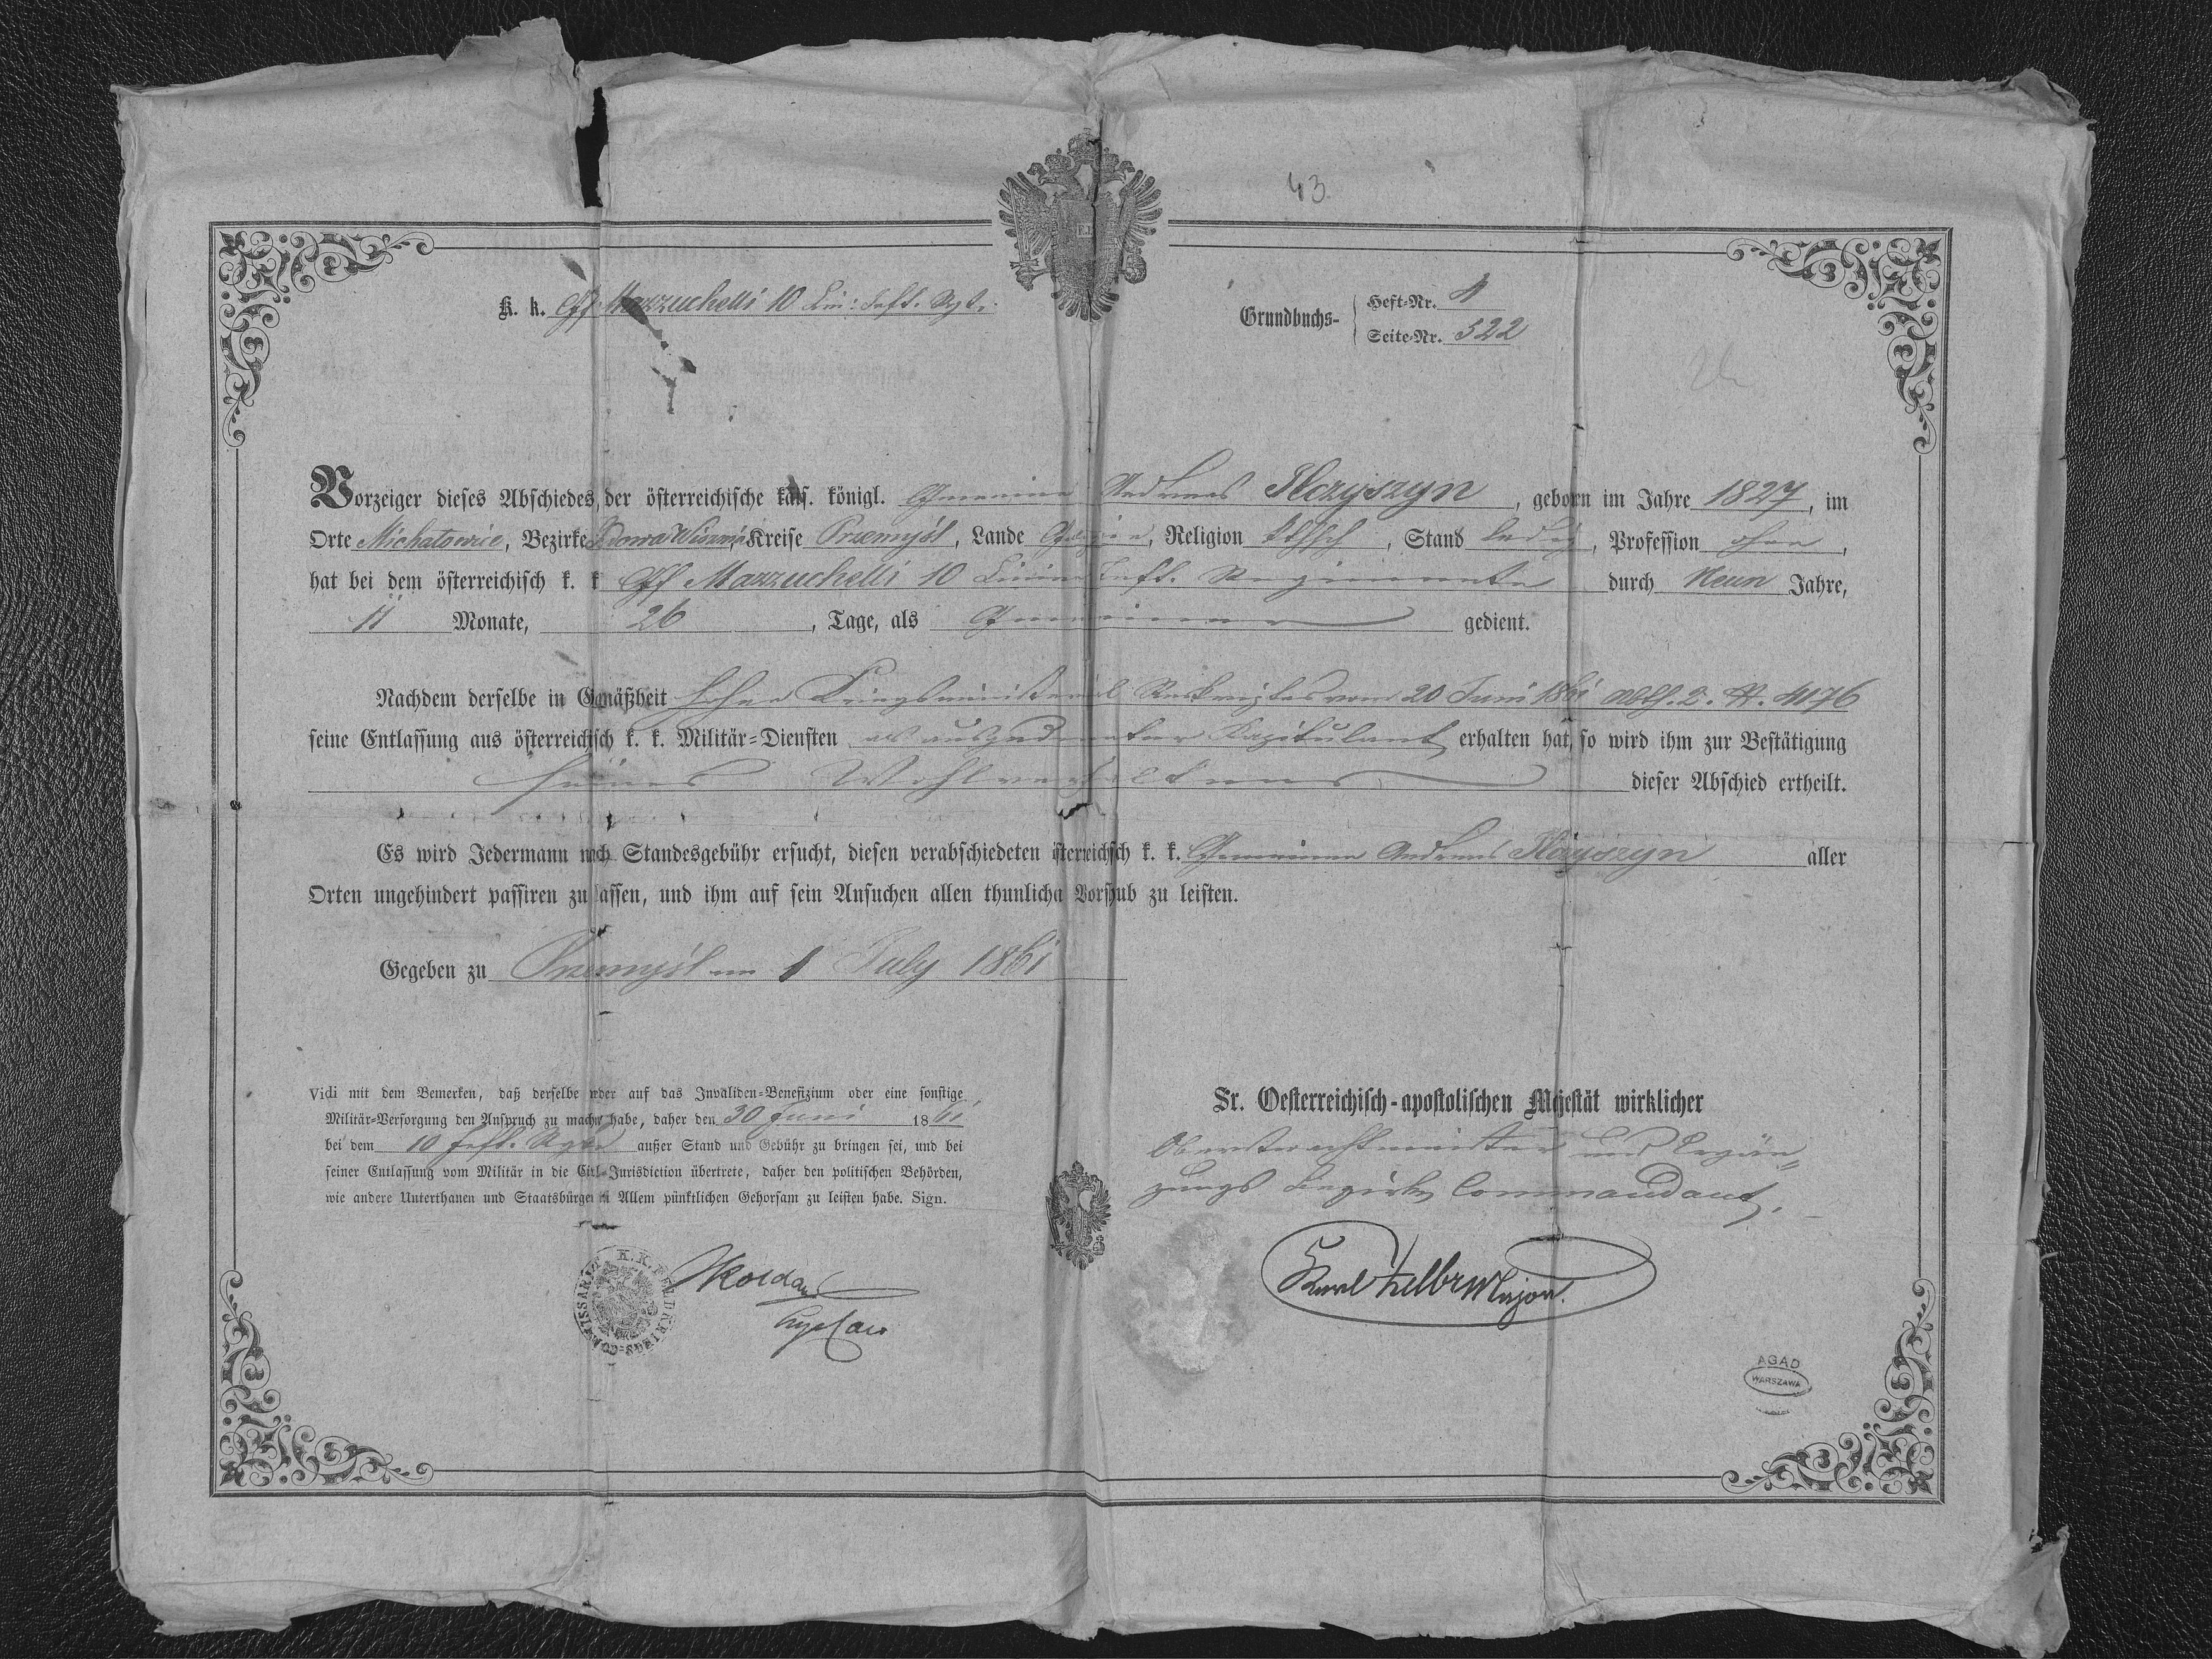 43
K. k. Gf. Mazzuchelli 10 Lin: Inft. Rgt.
Grundbuchs- Heft-Nr.
Seite-Nr. 522
Vorzeiger dieses Abschiedes, der österreichische kais. königl. Gemeine Andreas Ilczyszyn, geboren im Jahre 1827, im
Orte Michałowice, Bezirke Sądowa Wisznia, Kreise Przemyśl, Lande Galizien, Religion kathsch, Stand ledig, Profession ohne,
hat bei dem österreichisch k. k. Gf Mazzuchelli 10 Linien Inft. Regimente durch Neun Jahre,
11 Monate, 26, Tage, als Gemeiner gedient.
Nachdem derselbe in Gemäßheit hohen Kriegsministerial Reskriptes vom 20 Juni 1861 Abth. 2. N. 4176
seine Entlassung aus österreichisch k. k. Militär-Diensten als ausgedienter Kapitulant erhalten hat, so wird ihm zur Bestätigung
seines Wohlverhaltens dieser Abschied ertheilt.
Es wird Jedermann nach Standesgebühr ersucht, diesen verabschiedeten österreichisch k. k. Gemeinen Andreas Ilczyszyn aller
Orten ungehindert passiren zu lassen, und ihm auf sein Ansuchen allen thunlichen Vorschub zu leisten.
Gegeben zu Przemyśl am 1 July 1861
Vidi mit dem Bemerken, daß derselbe weder auf das Invaliden-Benefizium oder eine sonstige
Militär-Versorgung den Anspruch zu machen habe, daher den 30 Juni 1861
bei dem 10 Inft. Rgte außer Stand und Gebühr zu bringen sei, und bei
seiner Entlassung vom Militär in die Civil-Jurisdiction übertrete, daher den politischen Behörden,
wie andere Unterthanen und Staatsbürger in Allem pünktlichen Gehorsam zu leisten habe. Sign.
Sr. Oesterreichisch-apostolischen Majestät wirklicher
Oberstwachtmeister und Ergän-
zungs Bezirks Commandant.
K. K. FELDKRIEGS-COMMISSARIAT
Karl Major.
AGAD
WARSZAWA